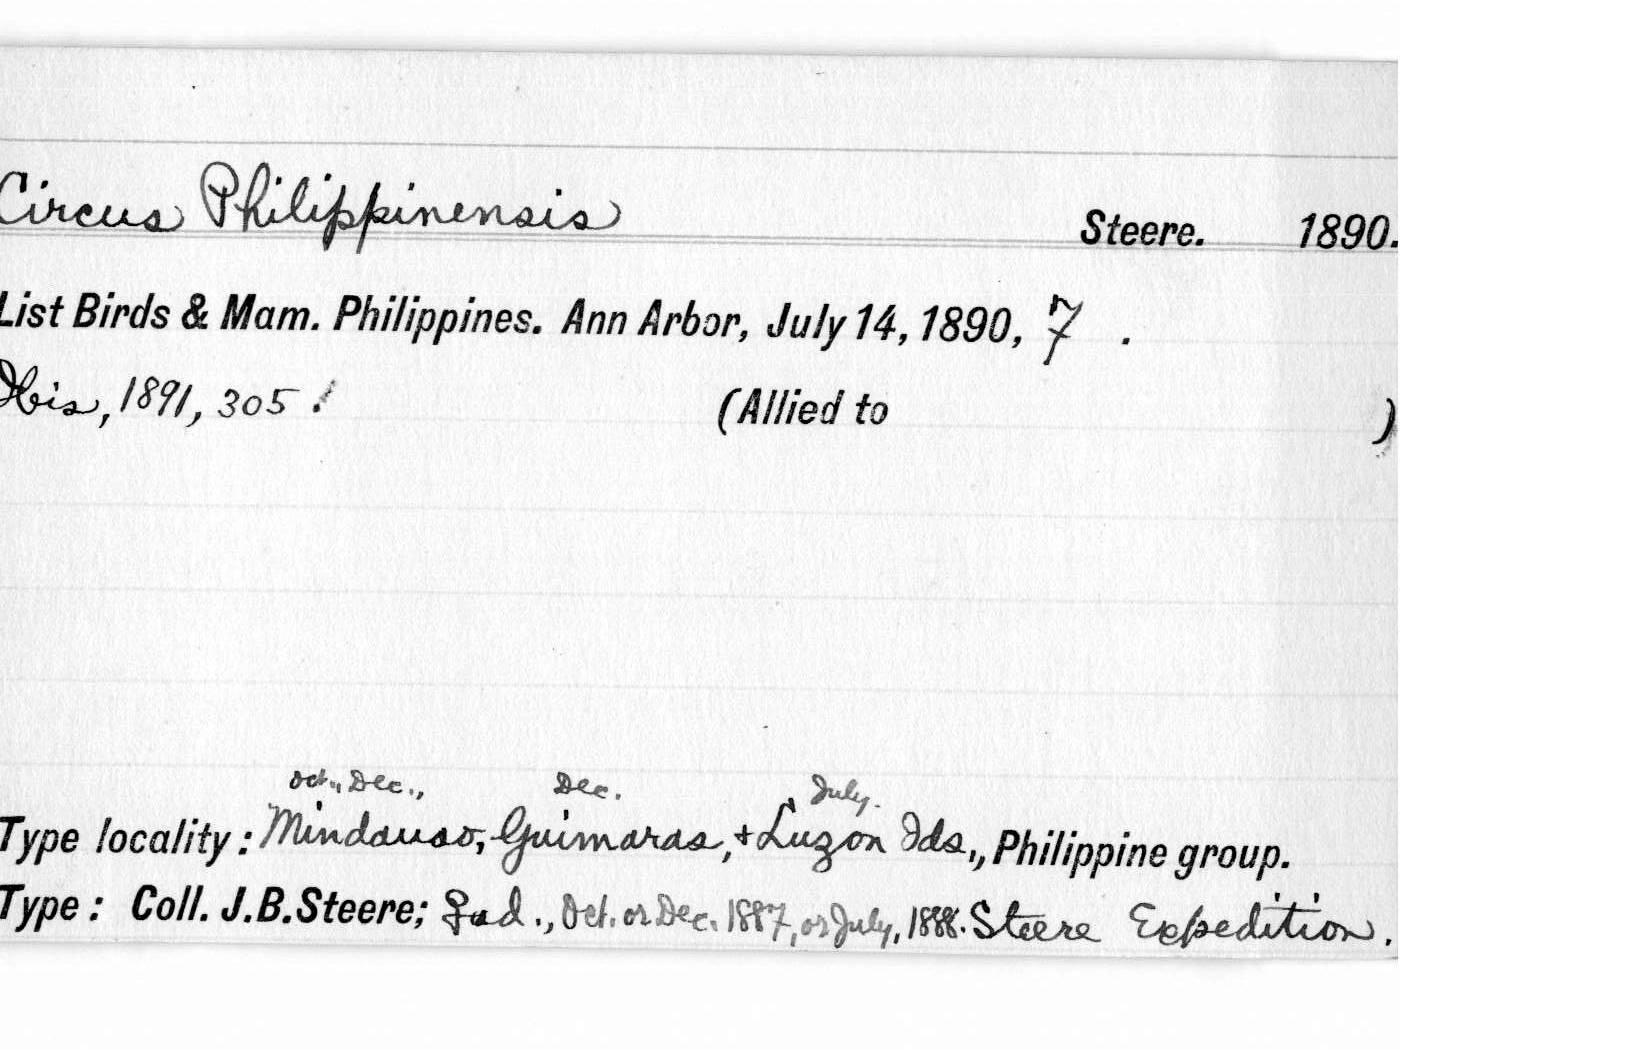 Circus Philippinensis Steere. 1890.
List Birds & Mam. Philippines. Ann Arbor, July 14, 1890, 7 .
Ibis, 1891, 305 ! (Allied to )
Oct., Dec., Dec. July.
Type locality: Mindanao, Guimaras, + Luzon Ids., Philippine group.
Type: Coll. J.B.Steere; ad., Oct. or Dec. 1887, or July, 1888. Steere Expedition.